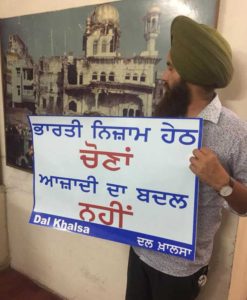 ਭਾਰਤੀ ਨਿਜ਼ਾਮ ਹੇਠ
ਚੋਣਾਂ
ਆਜ਼ਾਦੀ ਦਾ ਬਦਲ
ਨਹੀਂ
Dal Khalsa
ਦਲ ਖ਼ਾਲਸਾ